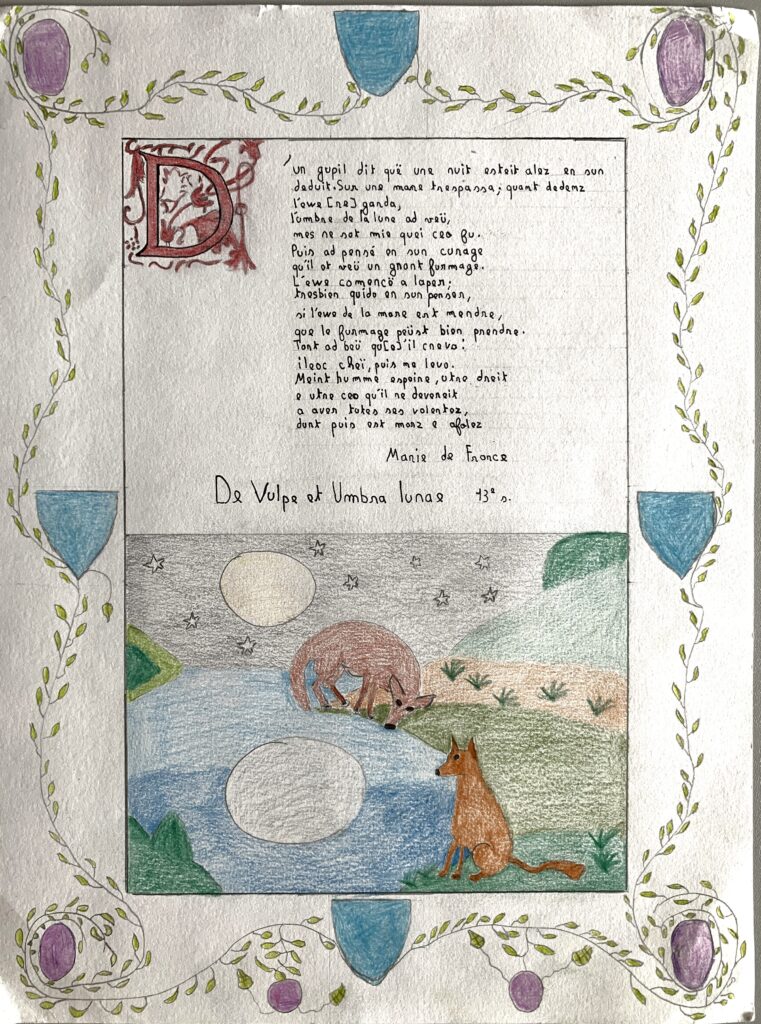 D'un gupil dit quë une nuit esteit alez en sun
deduit. Sur une mare trespassa; quant dedenz
l'ewe [re]garda,
l'umbre de la lune ad veü,
mes ne sot mie quei ceo fu.
Puis ad pensé en sun curage
qu'il ot veü un grant furmage.
L'ewe comencë a laper;
tresbien quide en sun penser,
si l'ewe de la mare ert mendre,
que le furmage peüst bien prendre.
Tant ad beü qu[e]'il creva:
ileoc cheï, puis ne leva.
Meint humme espeire, utre dreit
e utre ceo qu'il ne devereit
a aver tutes ses volentez,
dunt puis est morz e afolez
Marie de France
De Vulpe et Umbra lunae 13e s.